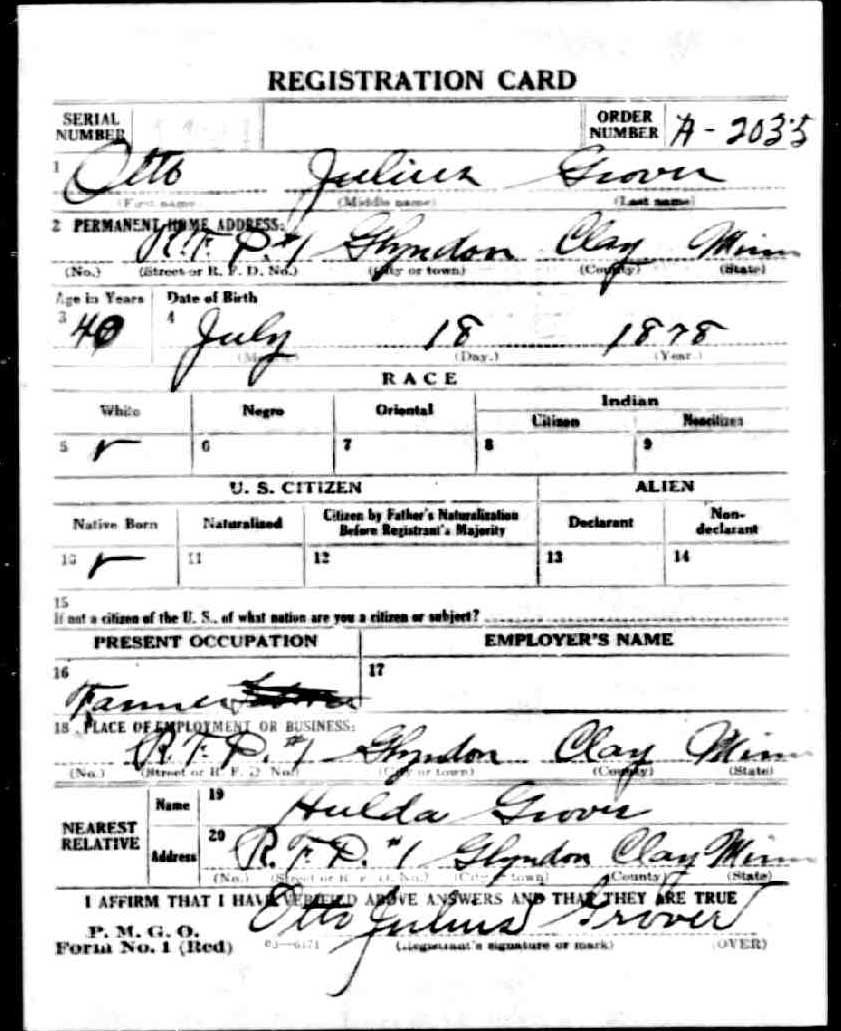 REGISTRATION CARD
SERIAL NUMBER ORDER NUMBER A-2035
1 Otto Julius Grover
(First name) (Middle name) (Last name)
2 PERMANENT HOME ADDRESS:
R.F.D. #1 Glyndon Clay Minn
(No.) (Street or R. F. D. No.) (City or town) (County) (State)
Age in Years Date of Birth
3 40 4 July 18 1878
(Month.) (Day.) (Year.)
RACE
White Negro Oriental Indian
Citizen Noncitizen
5 ✓ 6 7 8 9
U. S. CITIZEN ALIEN
Native Born Naturalized Citizen by Father's Naturalization Before Registrant's Majority Declarant Non-declarant
10 ✓ 11 12 13 14
15
If not a citizen of the U. S., of what nation are you a citizen or subject?
PRESENT OCCUPATION EMPLOYER'S NAME
16 Farmer 17
18 PLACE OF EMPLOYMENT OR BUSINESS:
R.F.D. #1 Glyndon Clay Minn
(No.) (Street or R. F. D. No.) (City or town) (County) (State)
NEAREST RELATIVE Name 19 Hulda Grover
Address 20 R.F.D. #1 Glyndon Clay Minn
(No.) (Street or R. F. D. No.) (City or town) (County) (State)
I AFFIRM THAT I HAVE VERIFIED ABOVE ANSWERS AND THAT THEY ARE TRUE
P. M. G. O.
Form No. 1 (Red) 03—6171 Otto Julius Grover
(Registrant's signature or mark) (OVER)